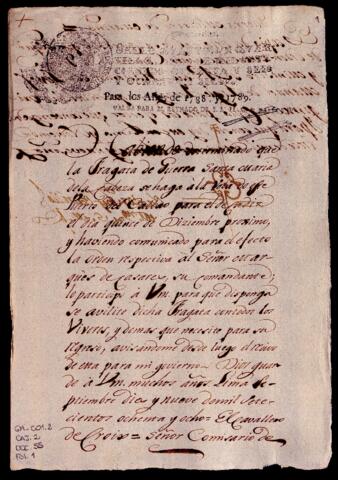 SELLO
Para los Años de 1788. y 1789.
VALGA PARA EL REYNADO DE S. M.
determinado que
la Fragata de Guerra Santa Maria
dela Cabeza se haga ála Vela de este
Puerto del Callao para el de Cadiz
el dia quince de Diziembre proximo,
y haviendo comunicado para el efecto
la Orden respectiva al Señor Mar-
ques de Casares, su Comandante;
lo participo á Vm. para que disponga
se avilite dicha Fragata con todos los
Viveres, y demas que necesite para su
regreso; avisandome desde luego el recivo
de esta para mi govierno. Dios guar
de á Vm. muchos años Lima Se-
ptiembre diez y nueve de mil Sete
cientos ochenta y ocho = El Cavallero
de Croix = Señor Comisario de
GM-CO1.2
CAJ. 2
DOC 55
FOL. 1